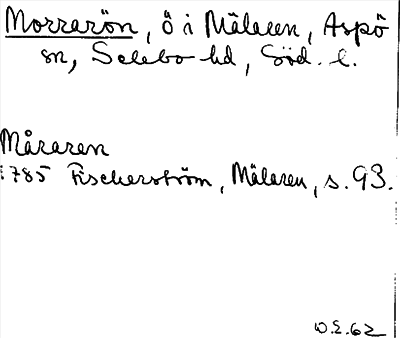 Morrarön, ö i Mälaren, Aspö
sn, Selebo hd, Söd. l.
Måraren
1785 Fischerström, Mälaren, s. 93.
W.E. 62